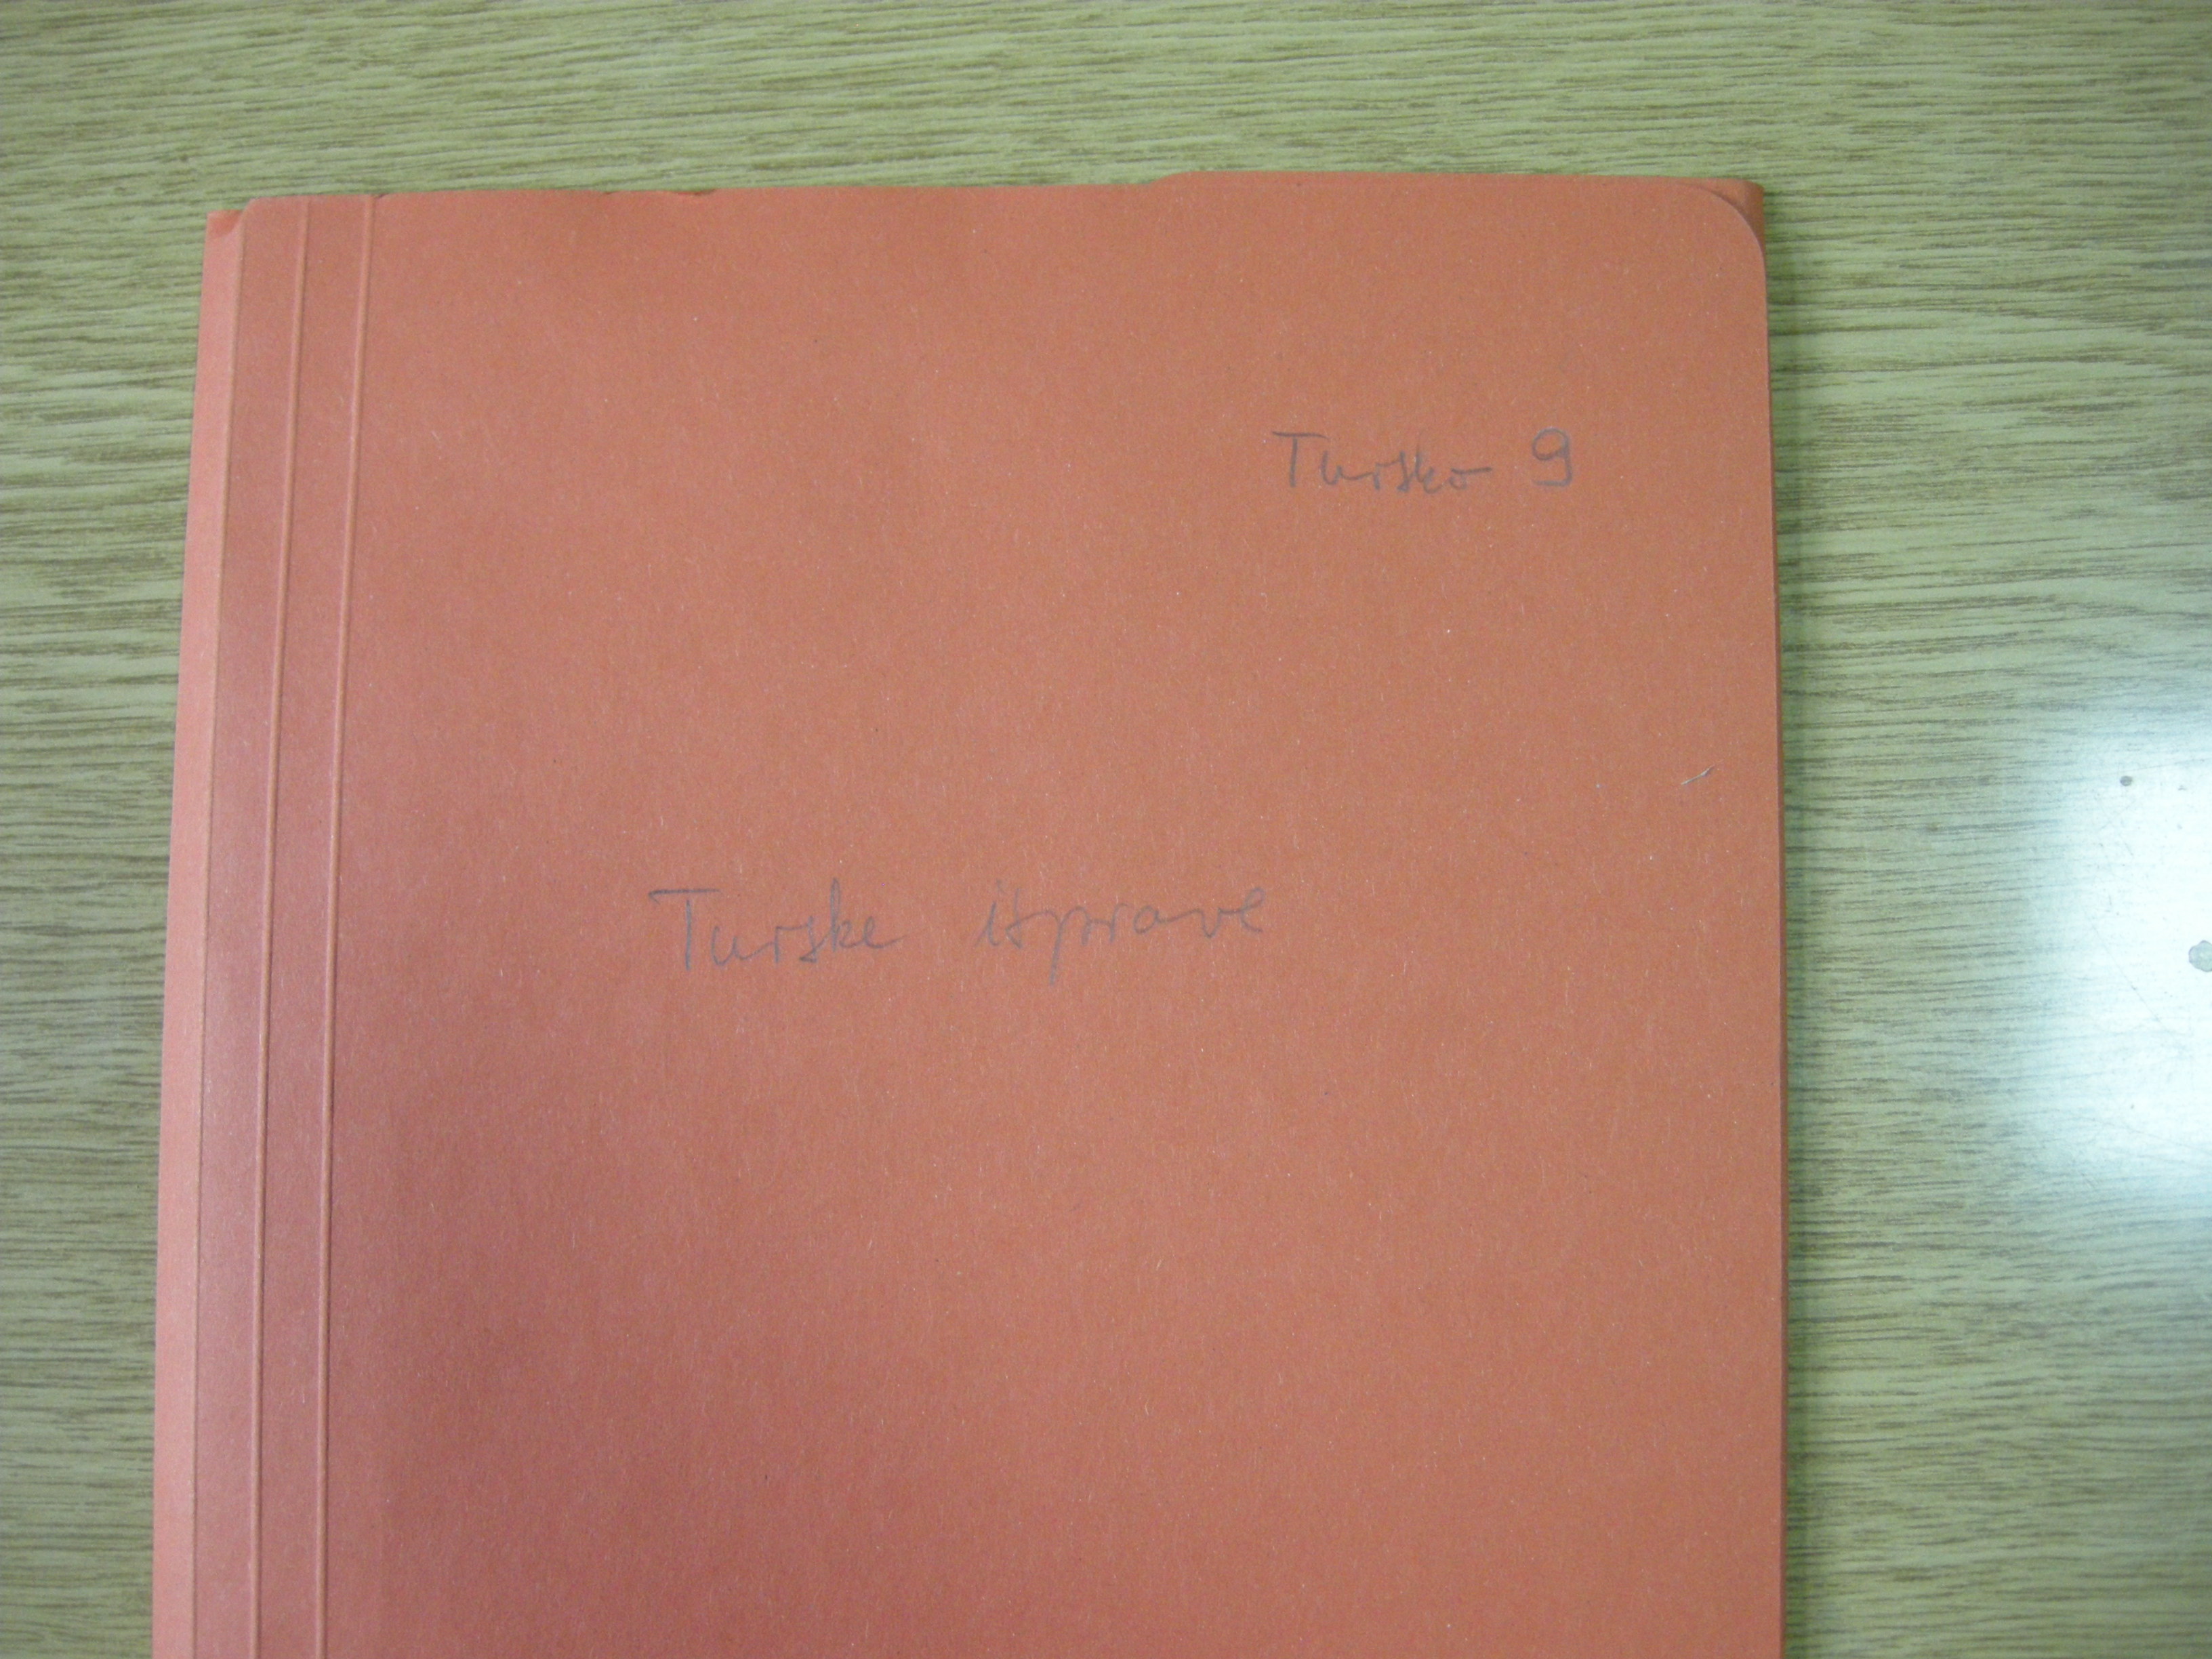 Tursko 9
Turske isprave